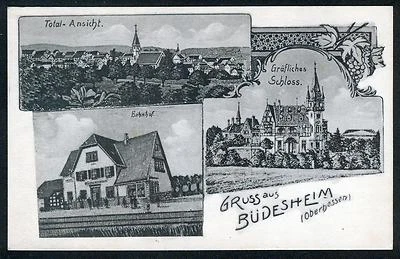 Total-Ansicht.
Gräfliches
Schloss.
Bahnhof.
GRUSS aus
BÜDESHEIM
(Oberhessen)